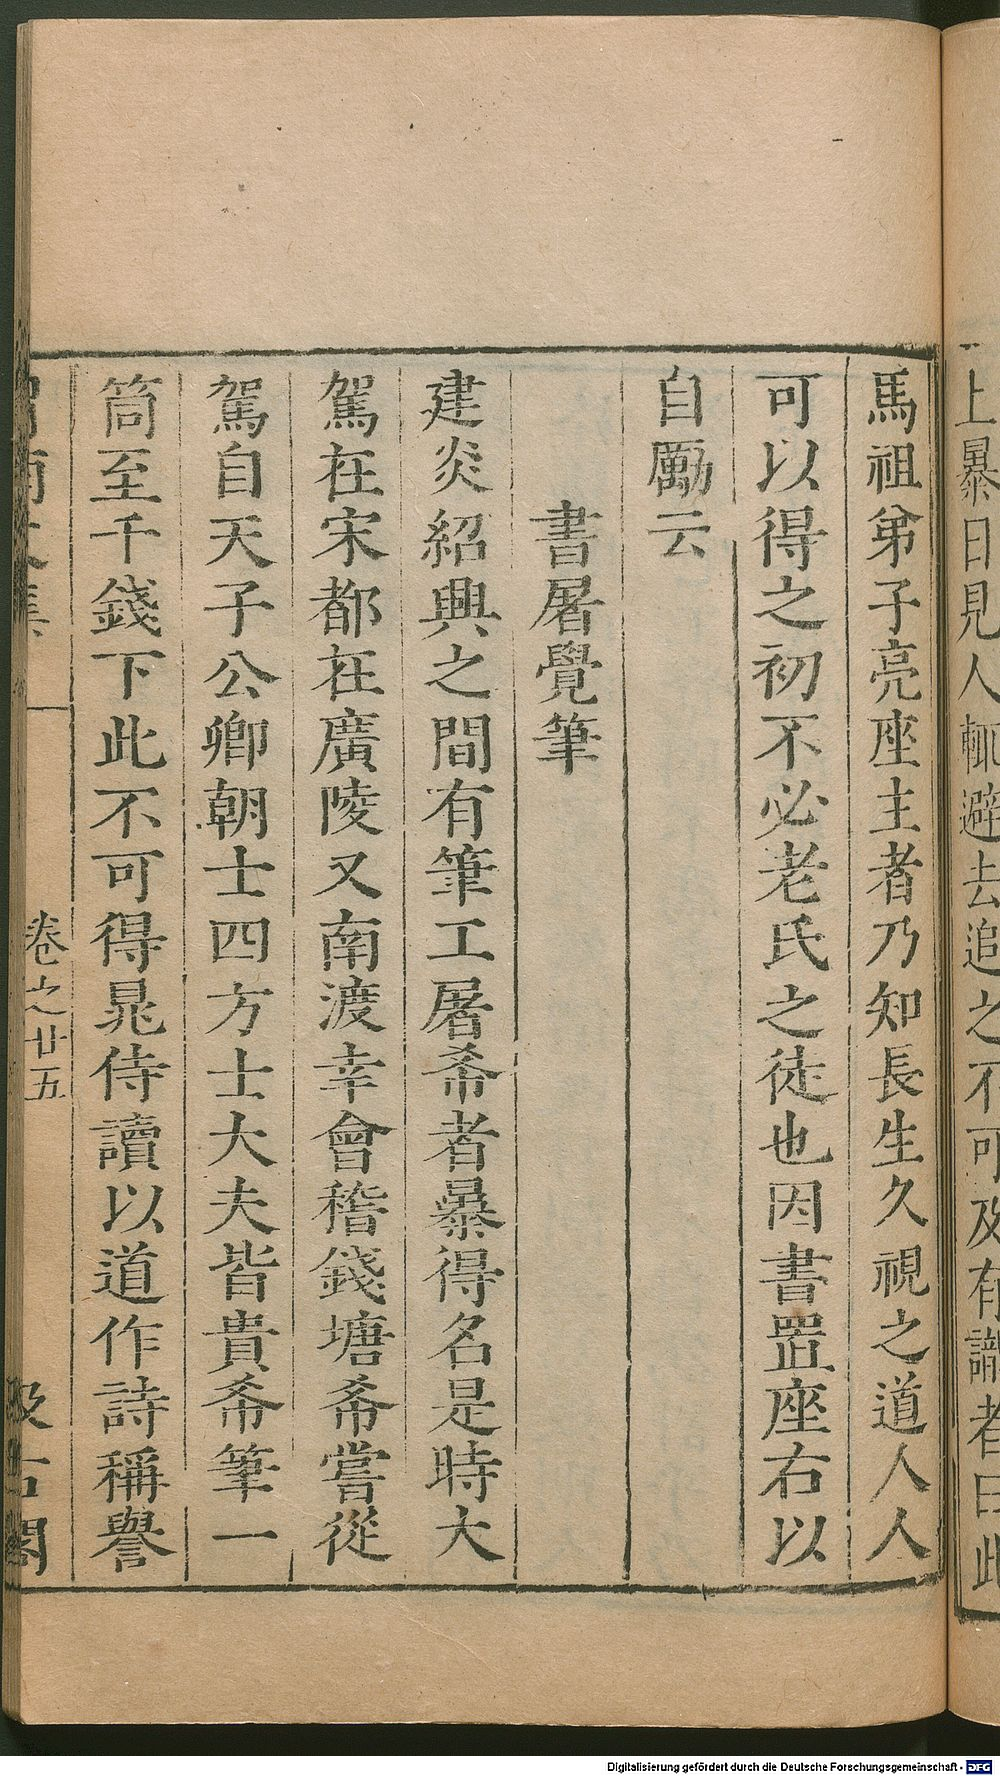 上暴日見人輒避去追之不可及有識者曰此
馬祖弟子亮座主者乃知長生久視之道人人
可以得之初不必老氏之徒也因書置座右以
自勵云
書屠覺筆
建炎紹興之間有筆工屠希者暴得名是時大
駕在宋都在廣陵又南渡幸會稽錢塘希嘗從
駕自天子公卿朝士四方士大夫皆貴希筆一
筒至千錢下此不可得晁侍讀以道作詩稱譽
卷之廿五
Digitalisierung gefördert durch die Deutsche Forschungsgemeinschaft - DFG